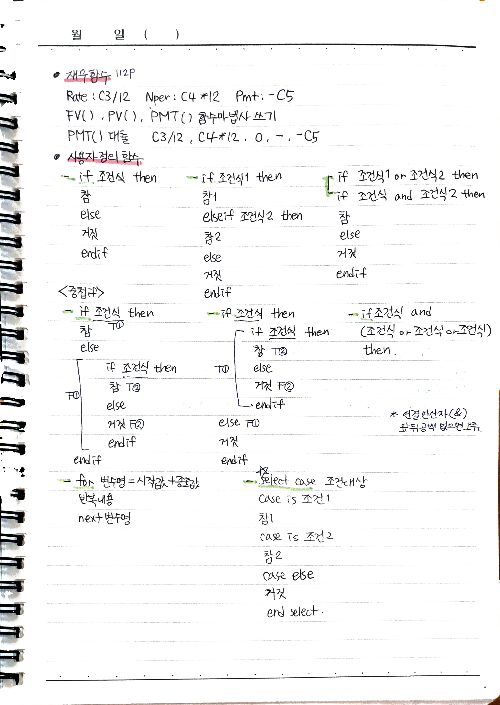 월 일 ( )
• 재무함수 112P
Rate : C3/12 Nper : C4*12 Pmt : -C5
FV(), PV(), PMT() 함수마법사 쓰기
PMT() 대출 C3/12, C4*12, 0, -, -C5
• 사용자 정의 함수
- if 조건식 then
참
else
거짓
endif
- if 조건식1 then
참1
elseif 조건식2 then
참2
else
거짓
endif
if 조건식1 or 조건식2 then
if 조건식 and 조건식2 then
참
else
거짓
endif
<중첩if>
- if 조건식 then
T①
참
else
F①
if 조건식 then
참 T②
else
거짓 F②
endif
endif
- if 조건식 then
T①
if 조건식 then
참 T②
else
거짓 F②
endif
else F①
거짓
endif
- if조건식 and
(조건식 or 조건식 or 조건식)
then.
* 연결연산자(&)
앞뒤공백 없으면 오류.
- for 변수명 = 시작값 + 종료값
반복내용
next 변수명
- select case 조건대상
case is 조건1
참1
case is 조건2
참2
case else
거짓
end select.